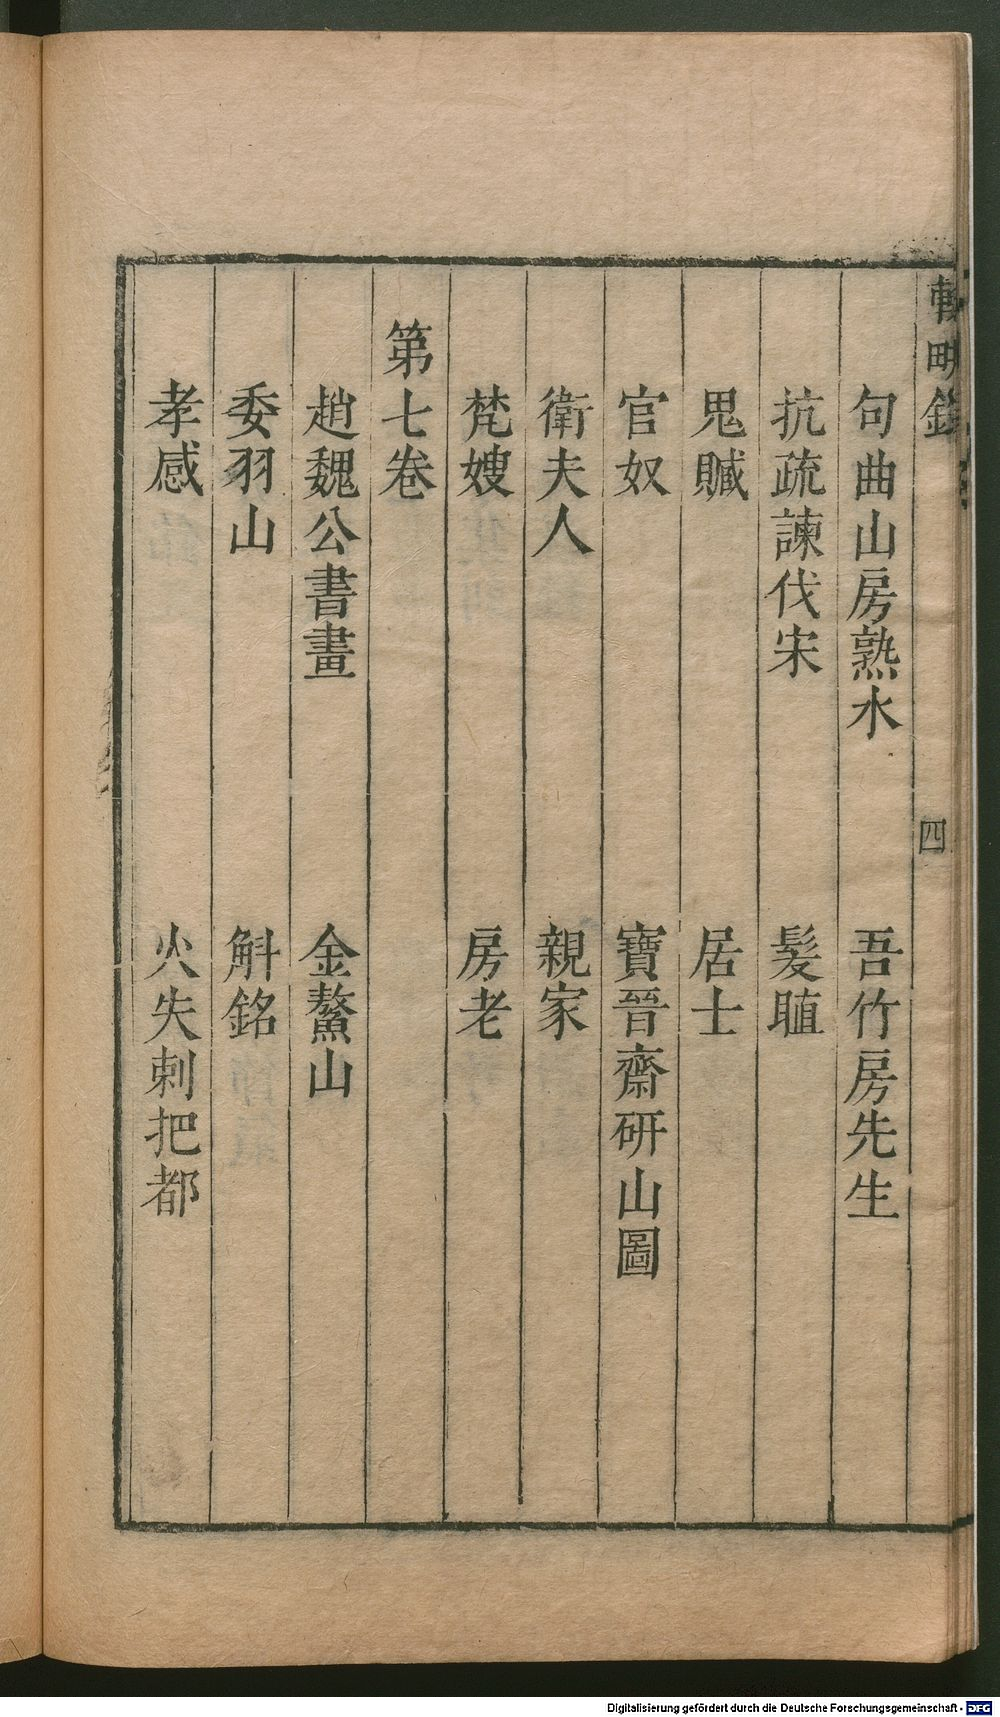 輟畊錄
四
句曲山房熟水　吾竹房先生
抗疏諫伐宋　髮𣖕
鬼贓　居士
官奴　寶晉齋研山圖
衛夫人　親家
梵嫂　房老
第七卷
趙魏公書畫　金鰲山
委羽山　斛銘
孝感　火失剌把都
Digitalisierung gefördert durch die Deutsche Forschungsgemeinschaft - DFG